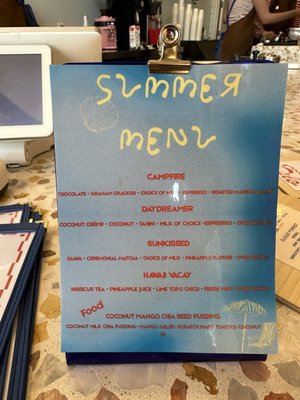 SUMMER
MENU
CAMPFIRE
CHOCOLATE • GRAHAM CRACKER • CHOICE OF MILK • ESPRESSO • ROASTED
DAYDREAMER
COCONUT CRÈME • COCONUT • TAHINI • MILK OF CHOICE • ESPRESSO • OVER
SUNKISSED
GUAVA • CEREMONIAL MATCHA • CHOICE OF MILK • PINEAPPLE FLOWER • OVER
HAWAII VACAY
HIBISCUS TEA • PINEAPPLE JUICE • LIME TOPO CHICO • FRESH MINT
Food
COCONUT MANGO CHIA SEED PUDDING
COCONUT MILK CHIA PUDDING • MANGO • SCRATCH MADE TOASTED COCONUT